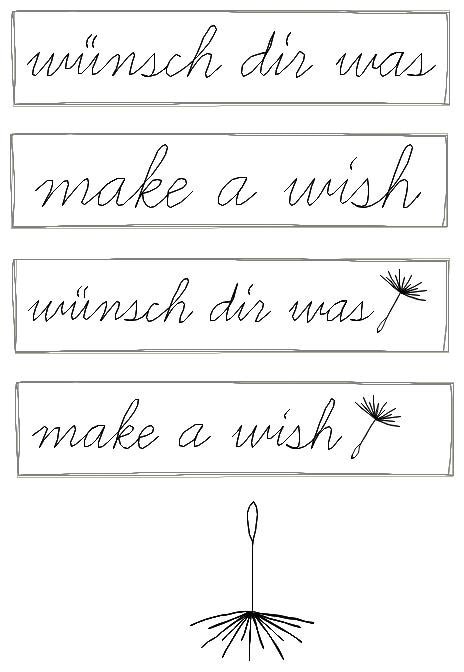 wünsch dir was
make a wish
wünsch dir was
make a wish